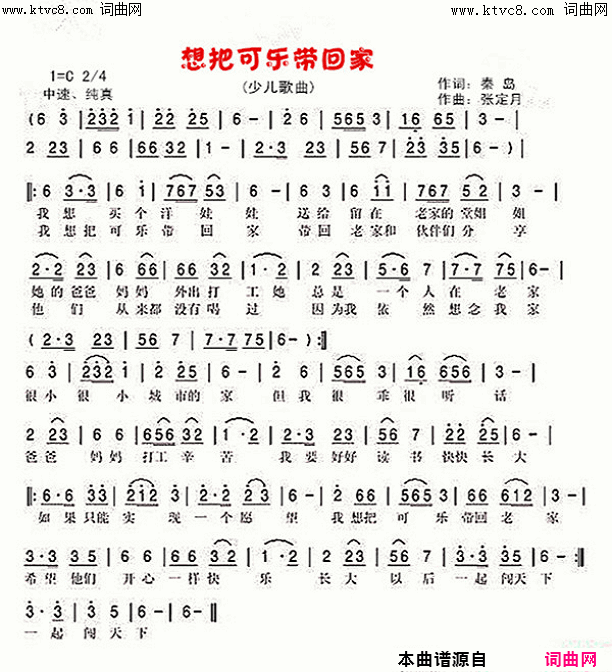 www.ktvc8.com 词曲网 www.ktvc8.com 词曲网
想把可乐带回家
1=C 2/4 (少儿歌曲) 作词：秦 岛
中速、纯真 作曲：张定月
(6 3 | 232 1 | 2 2 2 5 | 6 - | 6 - | 2 6 | 565 3 | 16 65 | 3 - |
2 23 | 6 6 | 66 32 | 1 - | 2·3 23 | 56 7 | 67 12 | 6 - ) |
‖: 6 3·3 | 6 1 | 767 53 | 6 - | 3 23 | 6 11 | 767 52 | 3 - |
我 想 买 个 洋 娃 娃 送 给 留 在 老家的 堂姐 姐
我 想把 可 乐 带 回 家 带 回 老 家和 伙伴们 分 享
2·2 23 | 6 66 | 66 32 | 1· 23 | 5·6 7 | 7·7 75 | 6 - |
她的 爸爸 妈妈 外出 打 工 她 总 是 一 个 人 在 老 家
他 们 从 来都 没有 喝 过 因 为我 依 然 想念 我 家
( 2·3 23 | 56 7 | 7·7 75 | 6 - ) :‖
6 3 | 232 1 | 22 25 | 6 - | 2 6 | 565 3 | 16 66 | 3 - |
很 小 很 小 城 市的 家 但 我 很 乖 很 听 话
2 23 | 6 6 | 656 32 | 1·2 | 2·3 23 | 56 7 | 22 25 | 6 - |
爸爸 妈妈 打工 辛 苦 我 要 好好 读 书 快快 长 大
‖: 6·6 33 | 212 3 | 2·2 12 | 6 - | 2 66 | 565 3 | 66 612 | 3 - |
如 果 只能 实 现 一 个 愿 望 我 想把 可 乐 带回 老 家
3·3 23 | 6 6 | 66 32 | 1·2 | 2 23 | 56 7 | 22 25 | 6 - :‖
希望 他们 开心 一样 快 乐 长 大 以 后 一起 闯天 下
3·3 | 3 5 | 6 - | 6 - ‖
一 起 闯 天 下
本曲谱源自 词曲网